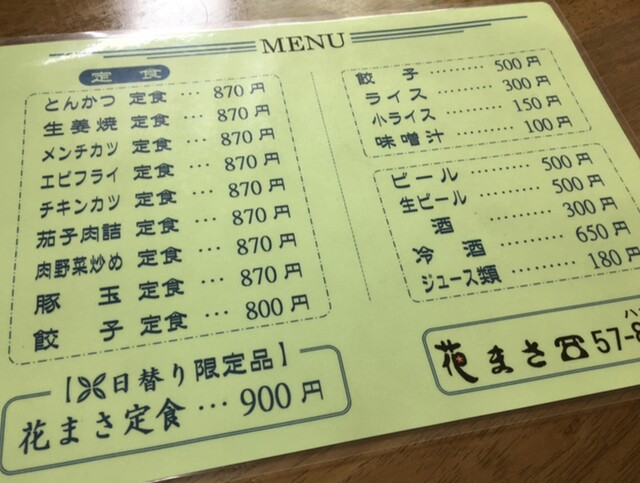 MENU
定食
とんかつ 定食 … 870円
生姜焼 定食 … 870円
メンチカツ 定食 … 870円
エビフライ 定食 … 870円
チキンカツ 定食 … 870円
茄子肉詰 定食 … 870円
肉野菜炒め 定食 … 870円
豚玉 定食 … 870円
餃子 定食 … 800円
【日替り限定品】
花まさ定食 … 900円
餃子 ……… 500円
ライス ……… 300円
小ライス ……… 150円
味噌汁 ……… 100円
ビール ……… 500円
生ビール ……… 500円
酒 ……… 300円
冷酒 ……… 650円
ジュース類 ……… 180円
花まさ☎57-